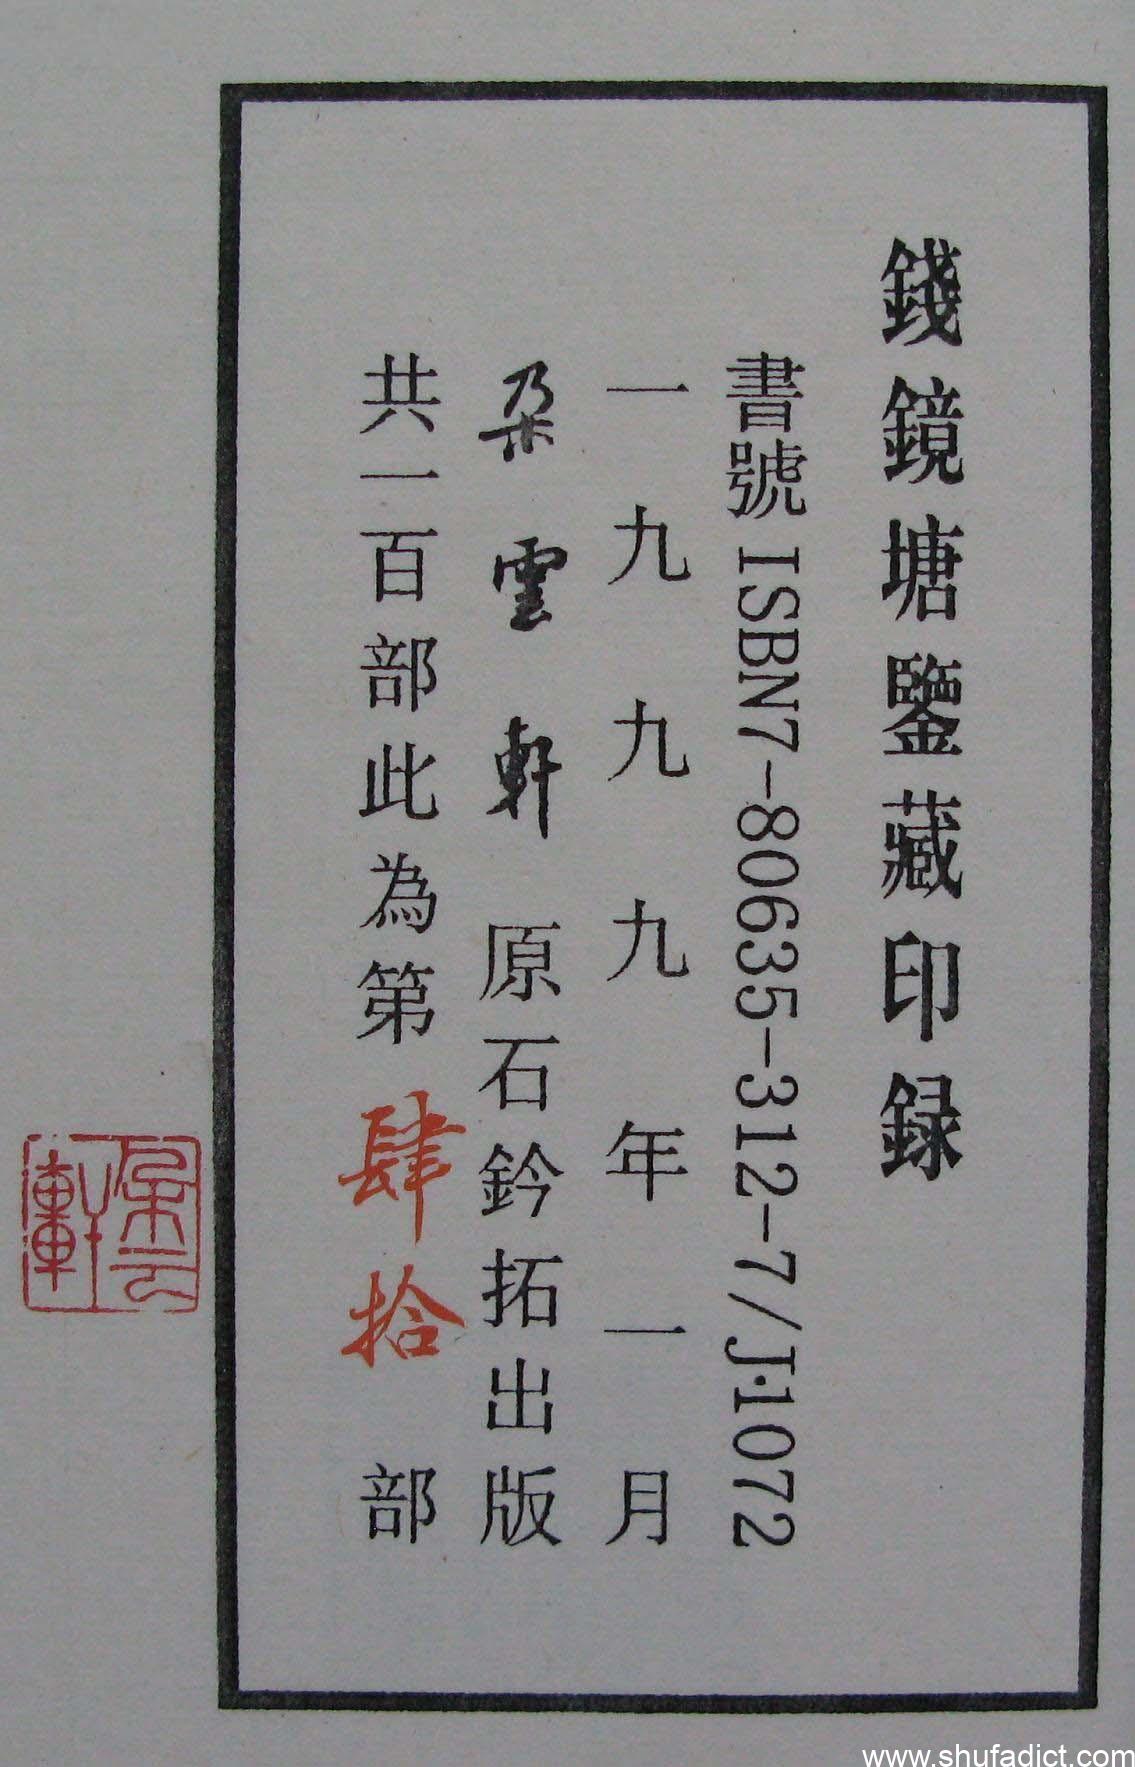 錢鏡塘鑒藏印録
書號 ISBN7-80635-312-7/J·1072
一九九九年一月
朵雲軒原石鈐拓出版
共一百部此為第肆拾部
朵云軒
www.shufadict.com